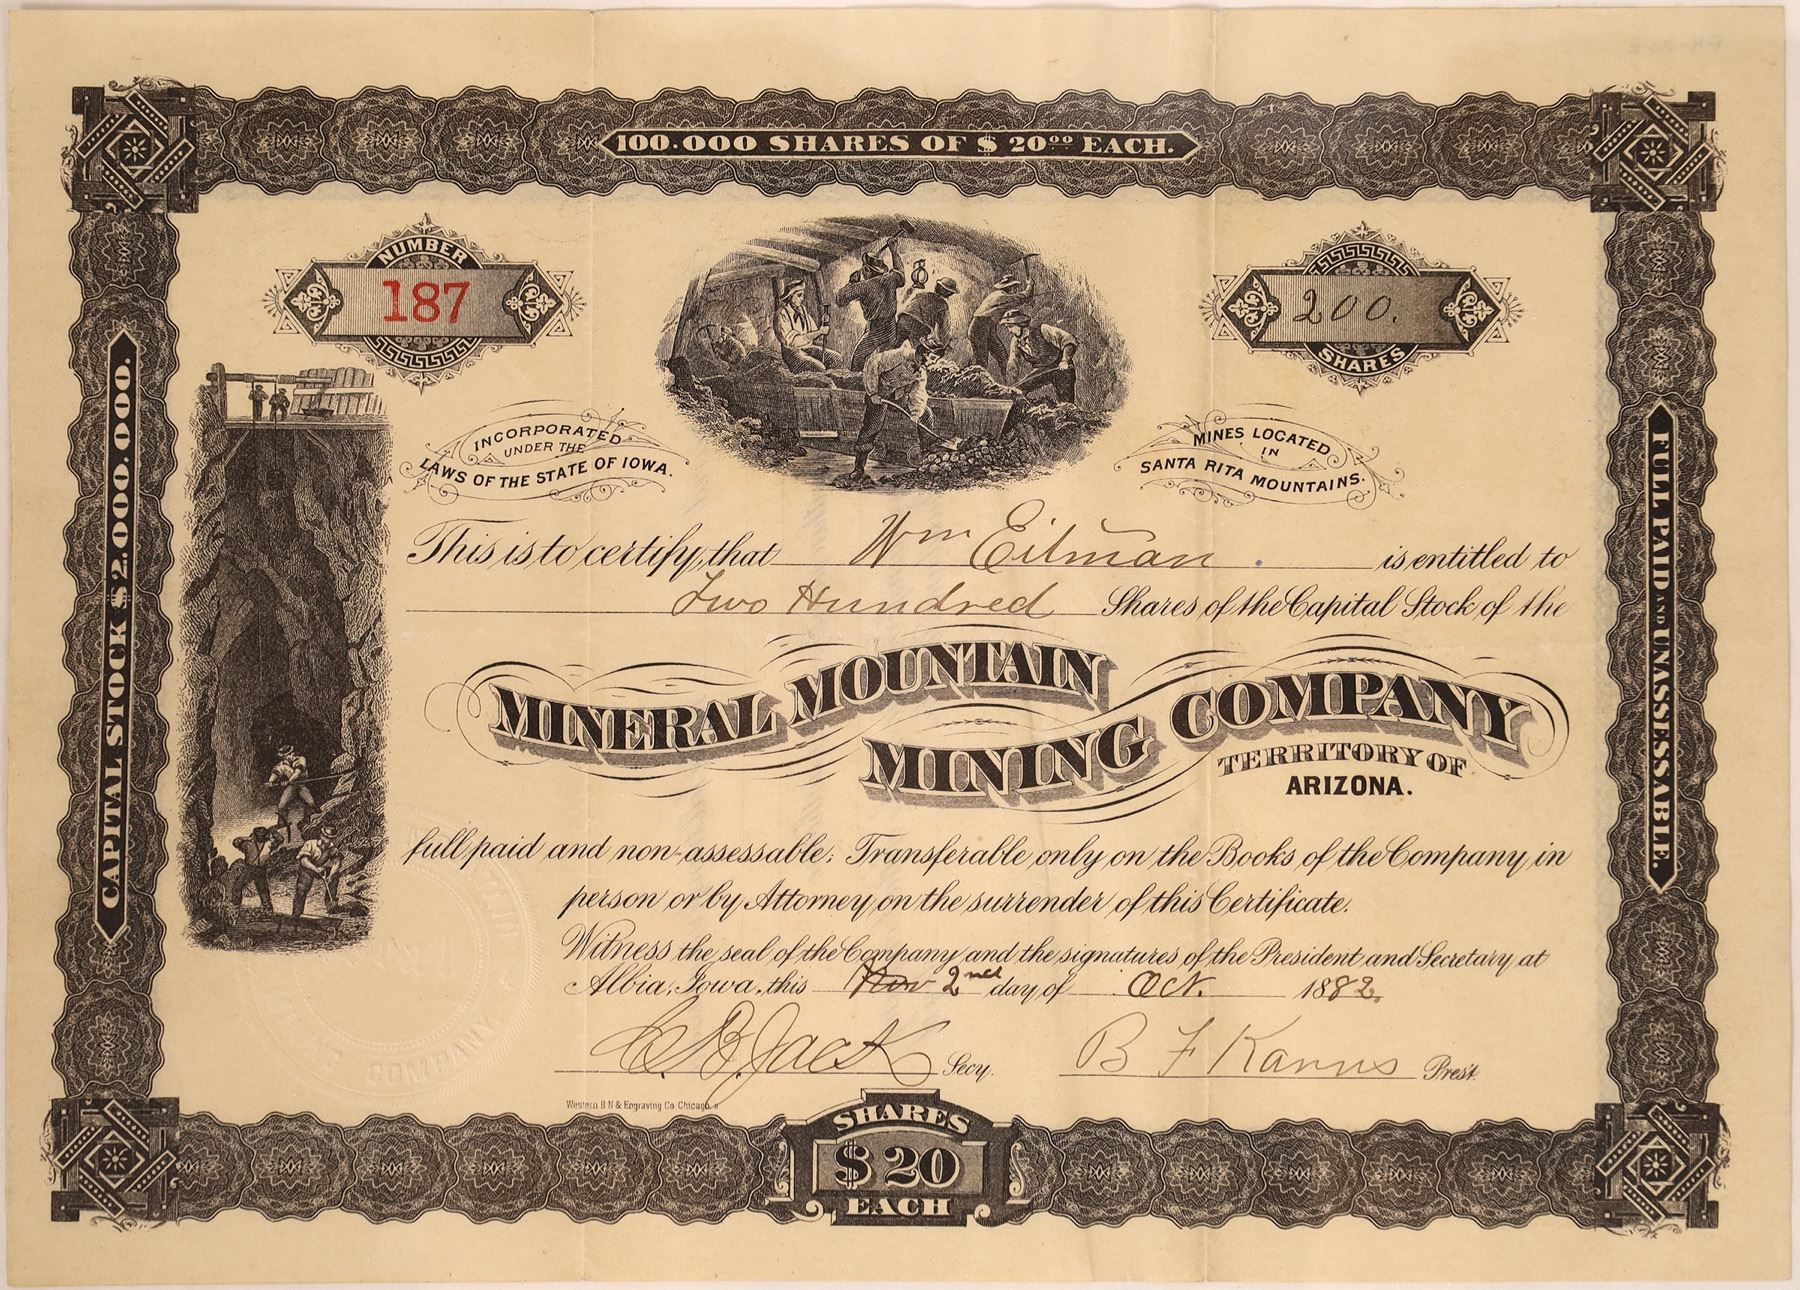 100.000 SHARES OF $ 20.00 EACH.
NUMBER
187
200.
SHARES
INCORPORATED
UNDER THE
LAWS OF THE STATE OF IOWA.
MINES LOCATED
IN
SANTA RITA MOUNTAINS.
CAPITAL STOCK $2.000.000.
FULL PAID AND UNASSESSABLE.
This is to certify, that Wm Eilman . is entitled to
Two Hundred Shares of the Capital Stock of the
MINERAL MOUNTAIN
MINING COMPANY
TERRITORY OF
ARIZONA.
full paid and non-assessable; Transferable only on the Books of the Company, in
person or by Attorney on the surrender of this Certificate.
Witness the seal of the Company and the signatures of the President and Secretary at
Albia, Iowa, this Nov 2nd day of Oct. 1882.
C B Jack Secy.
B F Prest.
Western B N & Engraving Co. Chicago
SHARES
$20
EACH
COMPANY